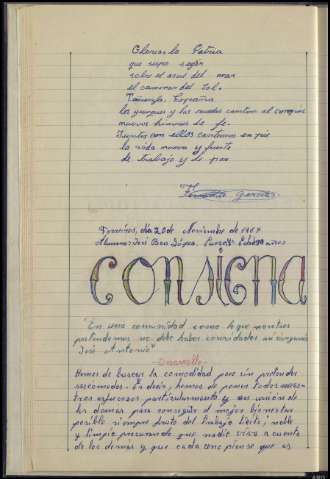 Gloria a la Patria
que supo seguir
sobre el azul del mar
el caminar del sol.
Triunfa, España
los yunques y las ruedas cantan al compás
nuevos himnos de fe.
Juntos con ellos cantemos en pie
la vida nueva y fuerte
de trabajo y de paz
día 20 de Noviembre de 1967
Alumno: José
CONSIGNA
"En una comunidad como la que nosotros
pretendemos no debe haber comodidades sin
José Antonio"
Desarrollo
Hemos de buscar la comodidad pero sin pretender
ser cómodos. Es decir, hemos de poner todos nues-
tros esfuerzos particularmente y en unión de
los demás para conseguir el mejor bienestar
posible siempre fruto del trabajo útil, noble
y limpio procurando que nadie viva a cuenta
de los demás y que cada uno piense que es